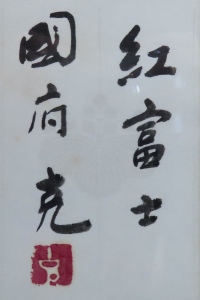 紅富士
國府克